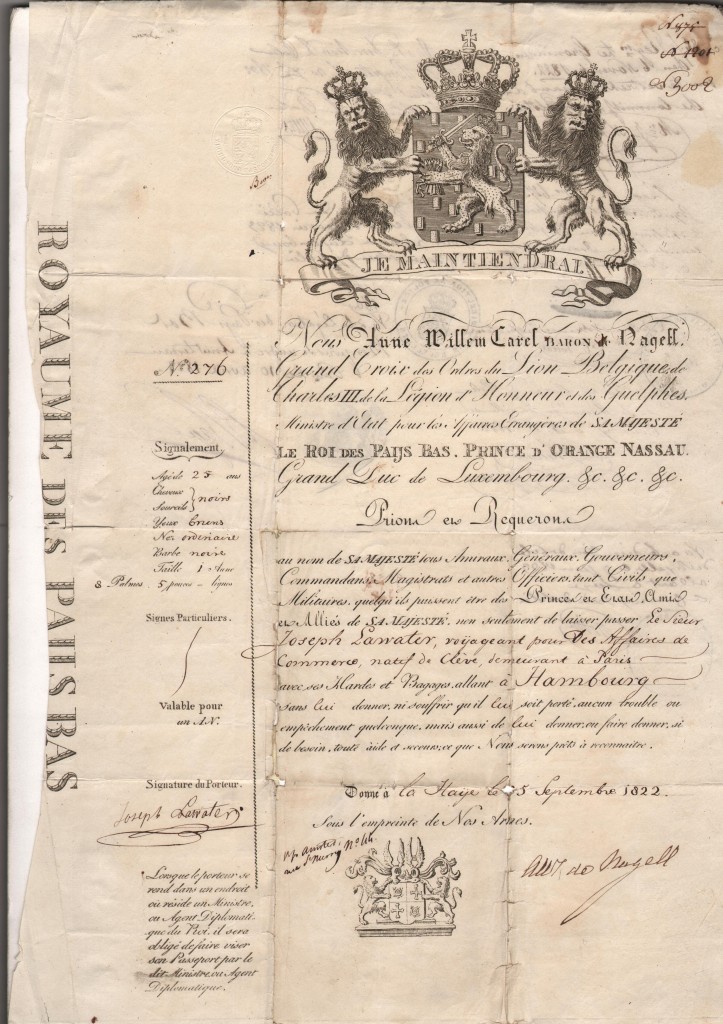 ROYAUME DES PAIJS BAS
N 975
N 1201
3002
JE MAINTIENDRAI.
Nous Anne Willem Carel BARON de Nagell.
Grand Croix des Ordres du Lion Belgique, de
Charles III, de la Légion d'Honneur et des Guelphes,
Ministre d'Etat pour les Affaires Etrangères de SA MAJESTÉ
LE ROI DES PAIJS BAS, PRINCE D'ORANGE NASSAU.
Grand Duc de Luxembourg. &c. &c. &c.
Prions et Requerons
au nom de SA MAJESTÉ tous Amiraux, Généraux, Gouverneurs,
Commandans, Magistrats et autres Officiers, tant Civils que
Militaires, quelqu'ils puissent être des Princes et Etats Amis
et Alliés de SA MAJESTÉ, non seulement de laisser passer Le Sieur
Joseph Lawater, voyageant pour Des Affaires de
Commerce, natif de Clève, demeurant à Paris
avec ses Hardes et Bagages, allant à Hambourg
sans lui donner, ni souffrir qu'il lui soit porté, aucun trouble ou
empêchement quelconque, mais aussi de lui donner, ou faire donner, si
de besoin, toute aide et secours, ce que Nous serons prêts à reconnaitre.
Donné à la Haye le 5 Septembre 1822.
Sous l'empreinte de Nos Armes.
AWC. de Nagell
No. 276
Signalement.
Agé de 25 ans
Cheveux
Sourcils } noirs
Yeux bruns
Nez ordinaire
Barbe noire
Taille 1 Aune
8 Palmes 5 pouces - lignes
Signes Particuliers.
Valable pour
un AN.
Signature du Porteur.
Joseph Lawater
Lorsque le porteur se
rend dans un endroit
où réside un Ministre,
ou Agent Diplomati-
que du Roi, il sera
obligé de faire viser
son Passeport par le
dit Ministre, ou Agent
Diplomatique.